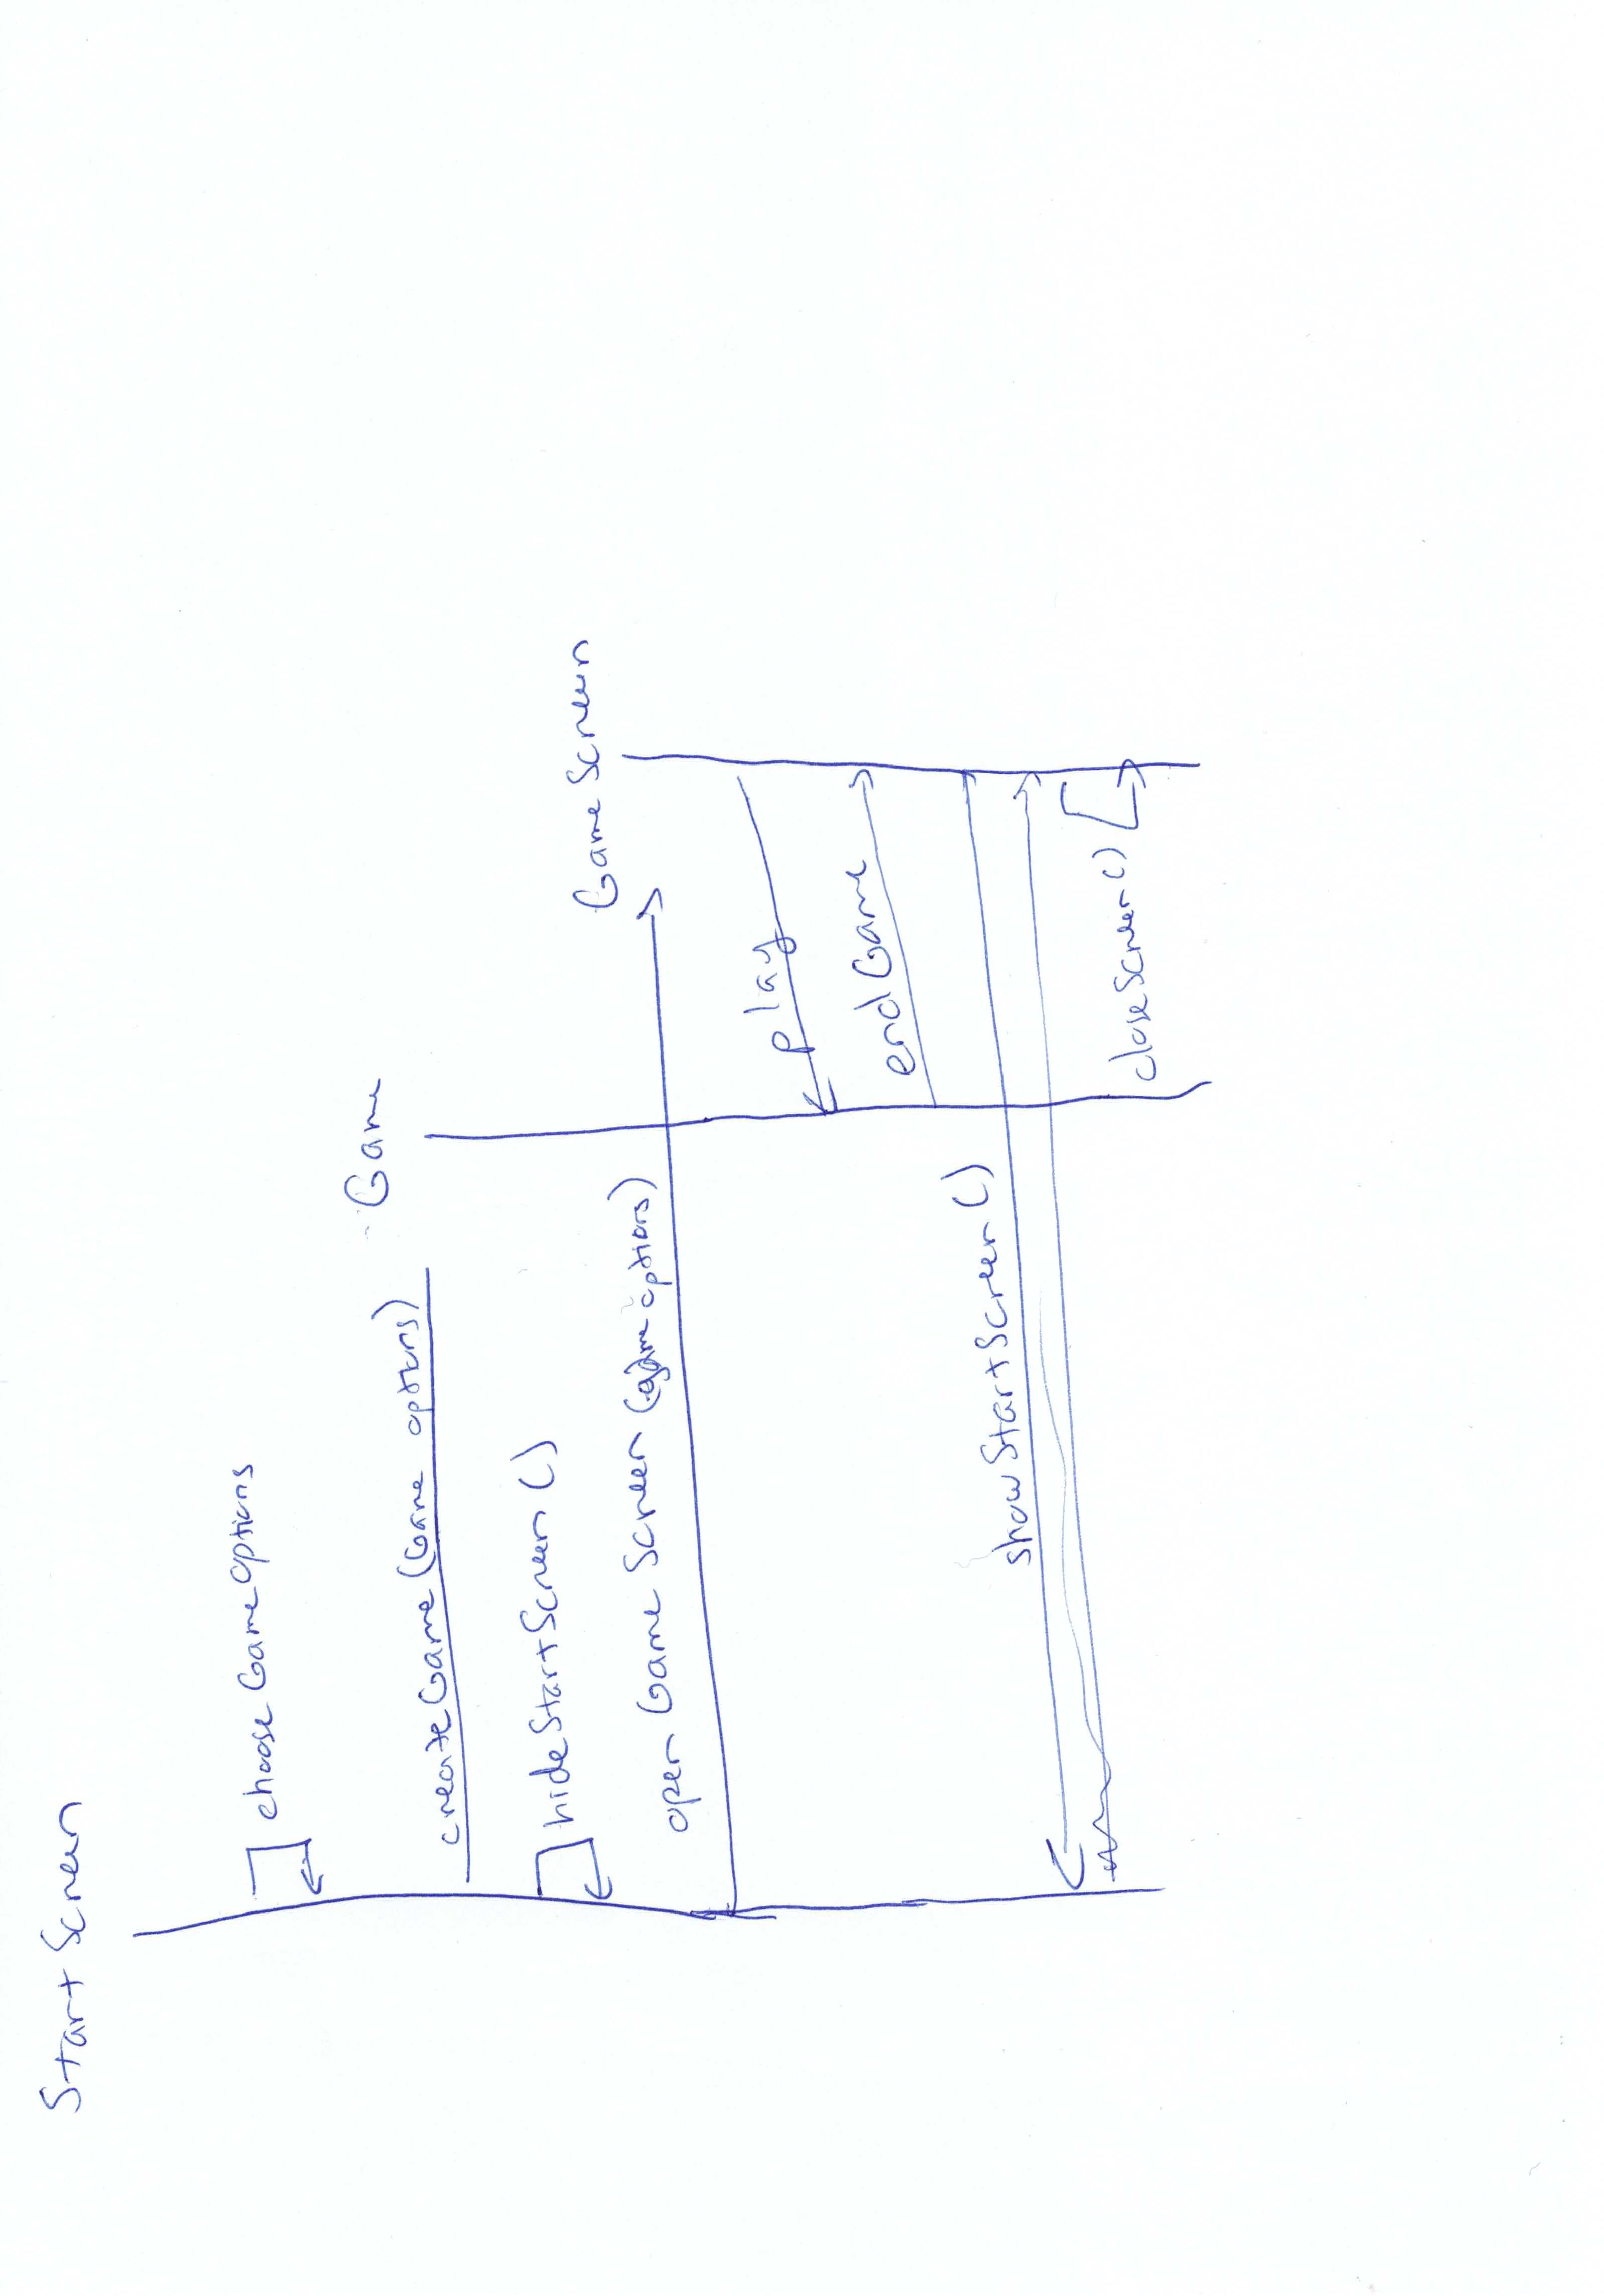 Start Screen
choose Game Options
Game
createGame (Game options)
hideStartScreen ()
Game Screen
open Game Screen (game options)
play
endGame
showStartScreen ()
closeScreen ()